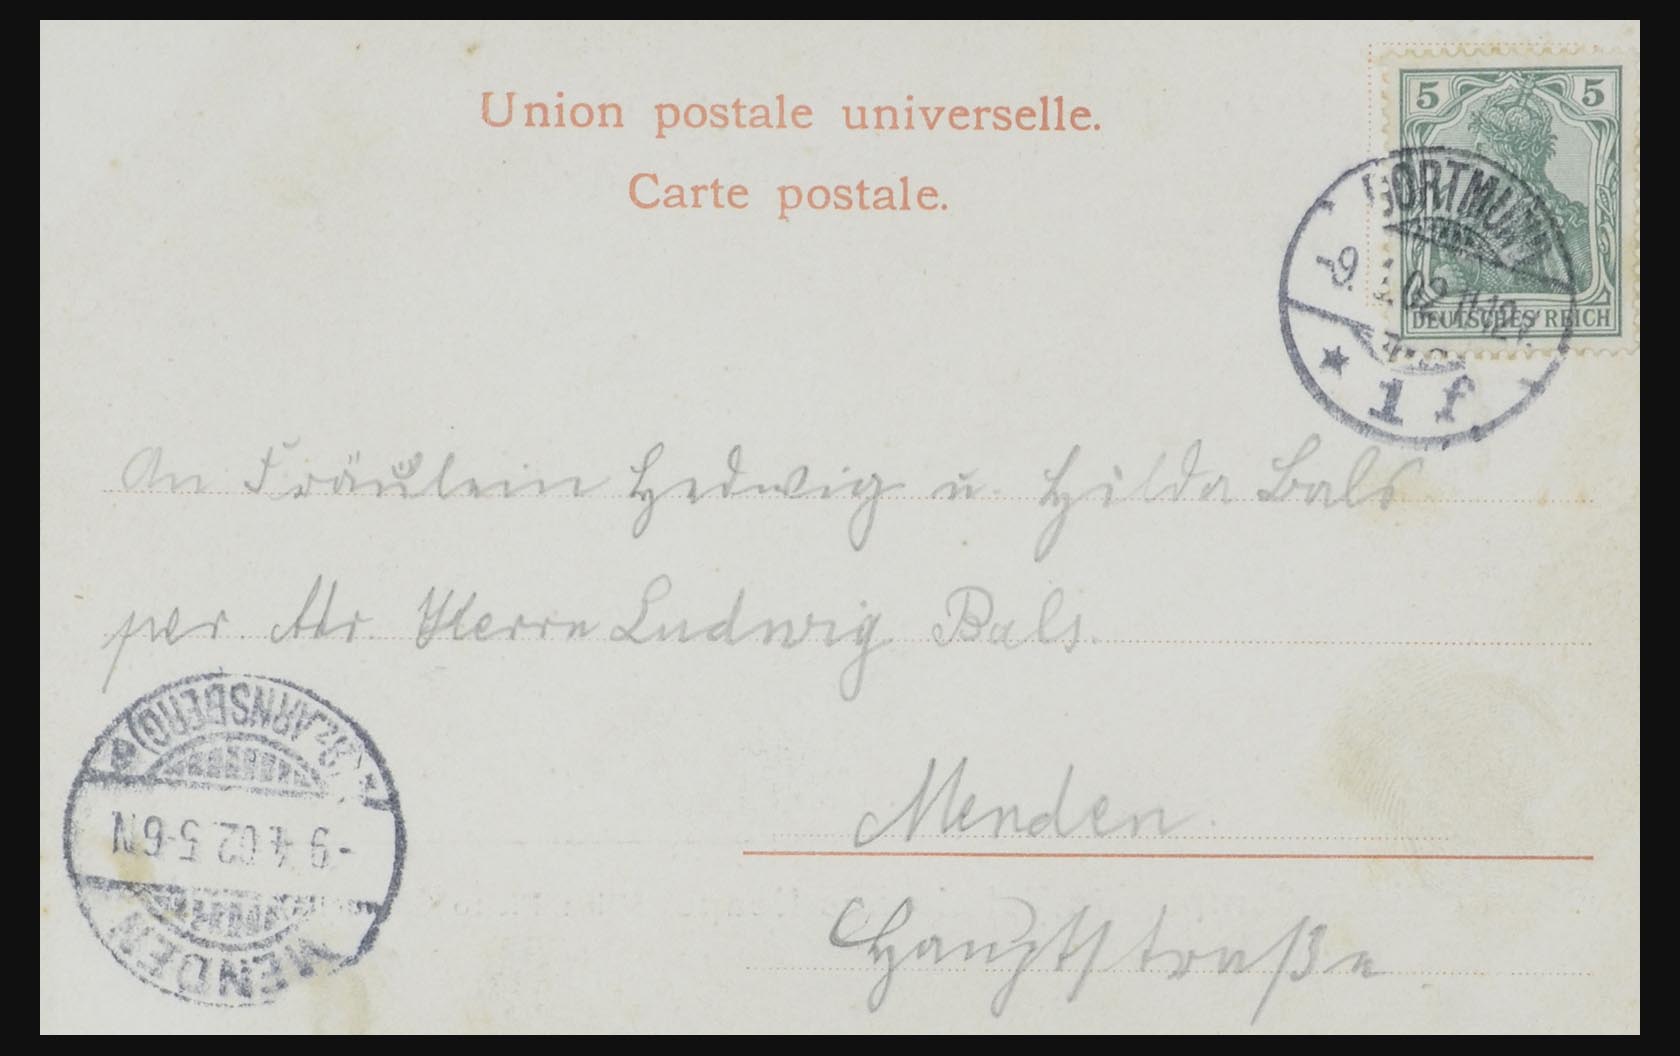 Union postale universelle.
Carte postale.
5 5
DEUTSCHES REICH
DORTMUND
-9. 02
1 f
An Fräulein Hedwig u. Hilda Bals
per Adr. Herrn Ludwig Bals.
Menden.
Hauptstraße
MENDEN
-9.4.02.5-6N
(BZ.ARNSBERG)